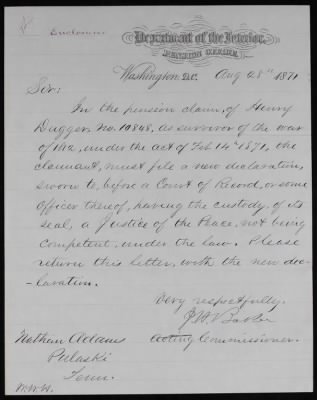 Enclosure
Department of the Interior,
PENSION OFFICE,
Washington, D.C. Aug 28th 1871
Sir:
In the pension claim, of Henry
Dugger, No. 10848, as survivor of the war
of 1812, under the act of Feb 14th 1871, the
claimant, must file a new declaration,
sworn to, before a Court of Record, or some
Officer thereof, having the custody of its
seal, a Justice of the Peace, not being
competent, under the law. Please
return this letter, with the new dec-
-laration.
Very respectfully,
Acting Commissioner.
Nathan Adams
Pulaski
Tenn.
W.W.W.